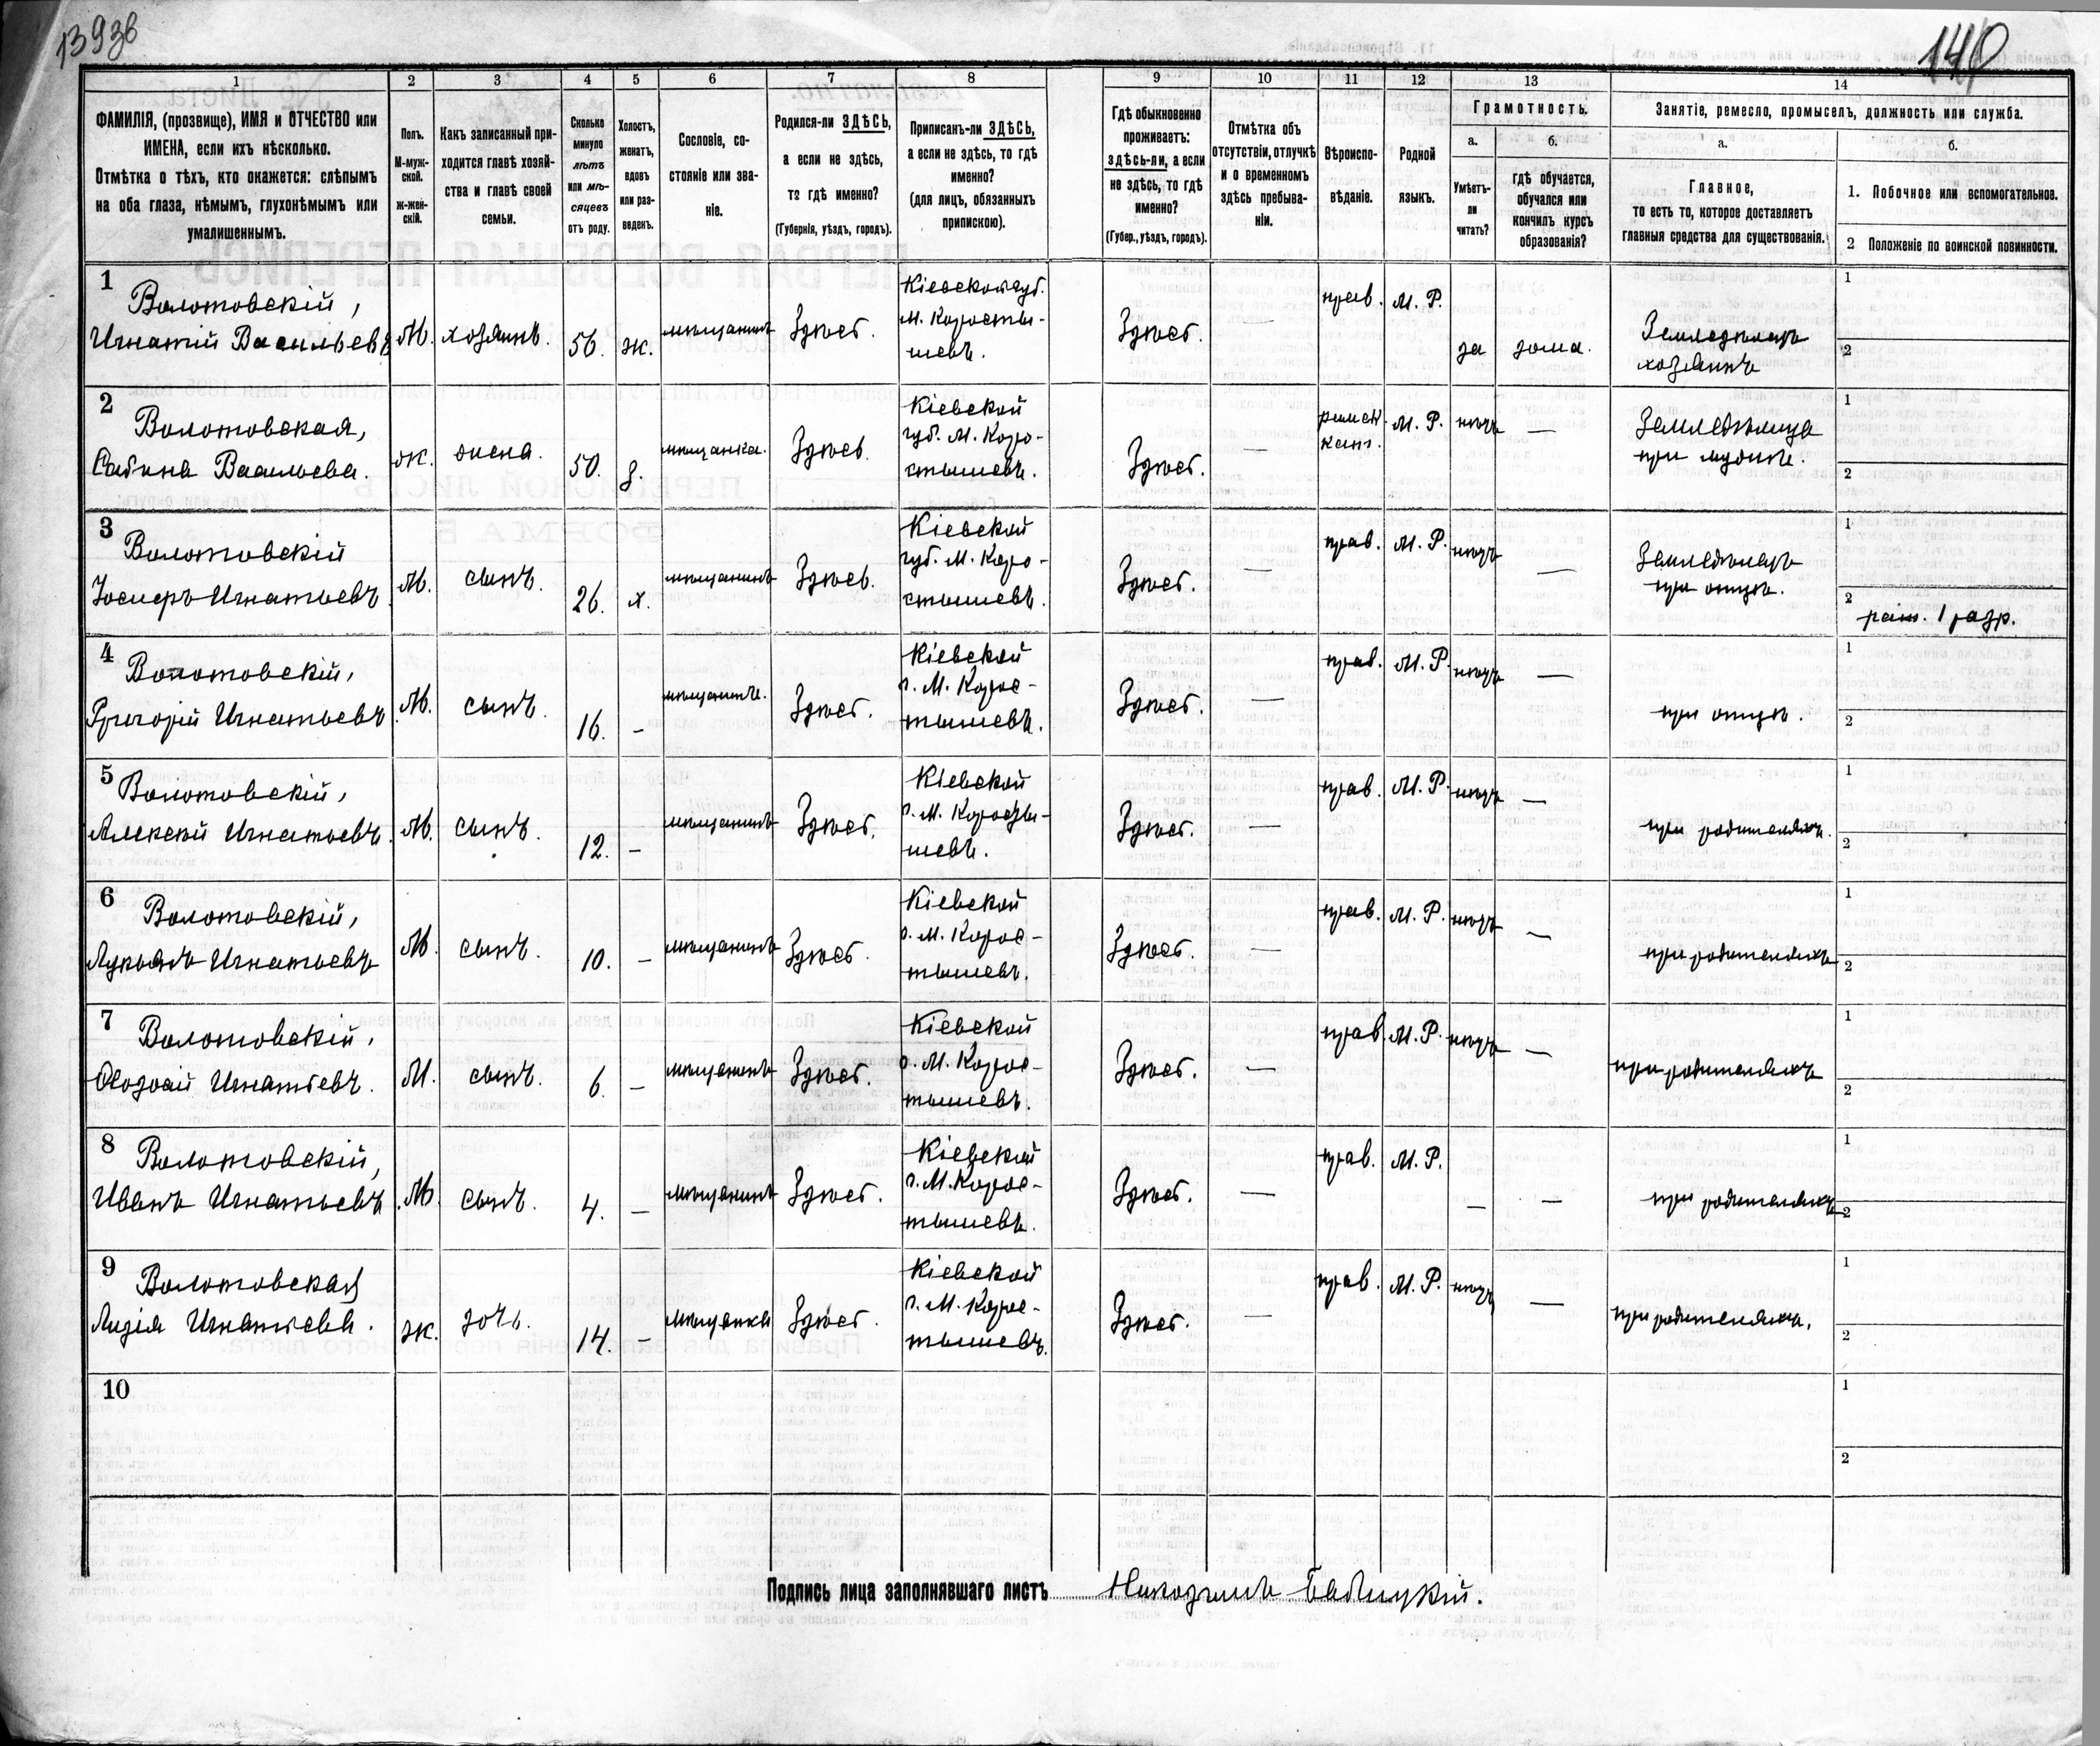 13936
140
1
2
3
4
5
6
7
8
9
10
11
12
13
14
ФАМИЛІЯ, (прозвище), ИМЯ и ОТЧЕСТВО или
ИМЕНА, если ихъ нѣсколько.
Отмѣтка о тѣхъ, кто окажется: слѣпымъ
на оба глаза, нѣмымъ, глухонѣмымъ или
умалишеннымъ.
Полъ.
М-муж-
ской.
Ж-жен-
скій.
Какъ записанный при-
ходится главѣ хозяй-
ства и главѣ своей
семьи.
Сколько
минуло
лѣтъ
или мѣ-
сяцевъ
отъ роду.
Холостъ,
женатъ,
вдовъ
или раз-
веденъ.
Сословіе, со-
стояніе или зва-
ніе.
Родился-ли ЗДѢСЬ,
а если не здѣсь,
то гдѣ именно?
(Губернія, уѣздъ, городъ).
Приписанъ-ли ЗДѢСЬ,
а если не здѣсь, то гдѣ
именно?
(для лицъ, обязанныхъ
припискою).
Гдѣ обыкновенно
проживаетъ:
здѣсь-ли, а если
не здѣсь, то гдѣ
именно?
(Губер., уѣздъ, городъ).
Отмѣтка объ
отсутствіи, отлучкѣ
и о временномъ
здѣсь пребыва-
ніи.
Вѣроиспо-
вѣданіе.
Родной
языкъ.
Грамотность.
а.
Умѣетъ-
ли
читать?
б.
гдѣ обучается,
обучался или
кончилъ курсъ
образованія?
Занятіе, ремесло, промыселъ, должность или служба.
а.
Главное,
то есть то, которое доставляетъ
главныя средства для существованія.
б.
1. Побочное или вспомогательное.
2 Положеніе по воинской повинности.
1
Волотовскій,
Игнатій Васильевъ
М.
хозяинъ.
56.
ж.
мѣщанинъ
Здѣсь.
Кіевской губ.
М. Коросты-
шевъ.
Здѣсь.
—
прав.
М. Р.
да
дома.
Земледѣлецъ
хозяинъ
1
2
2
Волотовская,
Сабина Васильева.
ж.
жена.
50.
з.
мѣщанка.
Здѣсь
Кіевской
губ. М. Коро-
стышевъ.
Здѣсь.
—
римск.
кат.
М. Р.
нѣтъ
—
при мужѣ.
1
2
3
Волотовскій
Іосифъ Игнатьевъ
М.
сынъ.
26.
х.
мѣщанинъ
Здѣсь.
Кіевской
губ. М. Коро-
стышевъ.
Здѣсь.
—
прав.
М. Р.
нѣтъ
—
Земледѣлецъ
при отцѣ.
1
2
рат. 1 разр.
4
Волотовскій,
Григорій Игнатьевъ
М.
сынъ.
16.
-
мѣщанинъ.
Здѣсь.
Кіевской
г. М. Корос-
тышевъ.
Здѣсь.
—
прав.
М. Р.
нѣтъ
—
при отцѣ.
1
2
5
Волотовскій,
Алексѣй Игнатьевъ.
М.
сынъ.
12.
-
мѣщанинъ
Здѣсь.
Кіевской
г. М. Коросты-
шевъ.
Здѣсь.
—
прав.
М. Р.
нѣтъ
—
при родителяхъ.
1
2
6
Волотовскій,
Лукьянъ Игнатьевъ
М.
сынъ.
10.
-
мѣщанинъ
Здѣсь.
Кіевской
г. М. Корос-
тышевъ.
Здѣсь.
—
прав.
М. Р.
нѣтъ
—
при родителяхъ
1
2
7
Волотовскій,
Игнатьевъ.
М.
сынъ.
6.
-
мѣщанинъ
Здѣсь.
Кіевской
г. М. Корос-
тышевъ.
Здѣсь.
—
прав.
М. Р.
нѣтъ
—
при родителяхъ
1
2
8
Волотовскій,
Иванъ Игнатьевъ
М.
сынъ.
4.
-
мѣщанинъ
Здѣсь.
Кіевской
г. М. Корос-
тышевъ.
Здѣсь.
—
прав.
М. Р.
—
—
при родителяхъ
1
2
9
Волотовская
Лидія Игнатьева.
ж.
дочь.
14.
-
мѣщанка
Здѣсь.
Кіевской
г. М. Корос-
тышевъ.
Здѣсь.
—
прав.
М. Р.
нѣтъ
—
при родителяхъ.
1
2
10
1
2
Подпись лица заполнявшаго листъ
Никодимъ Бабицкій.